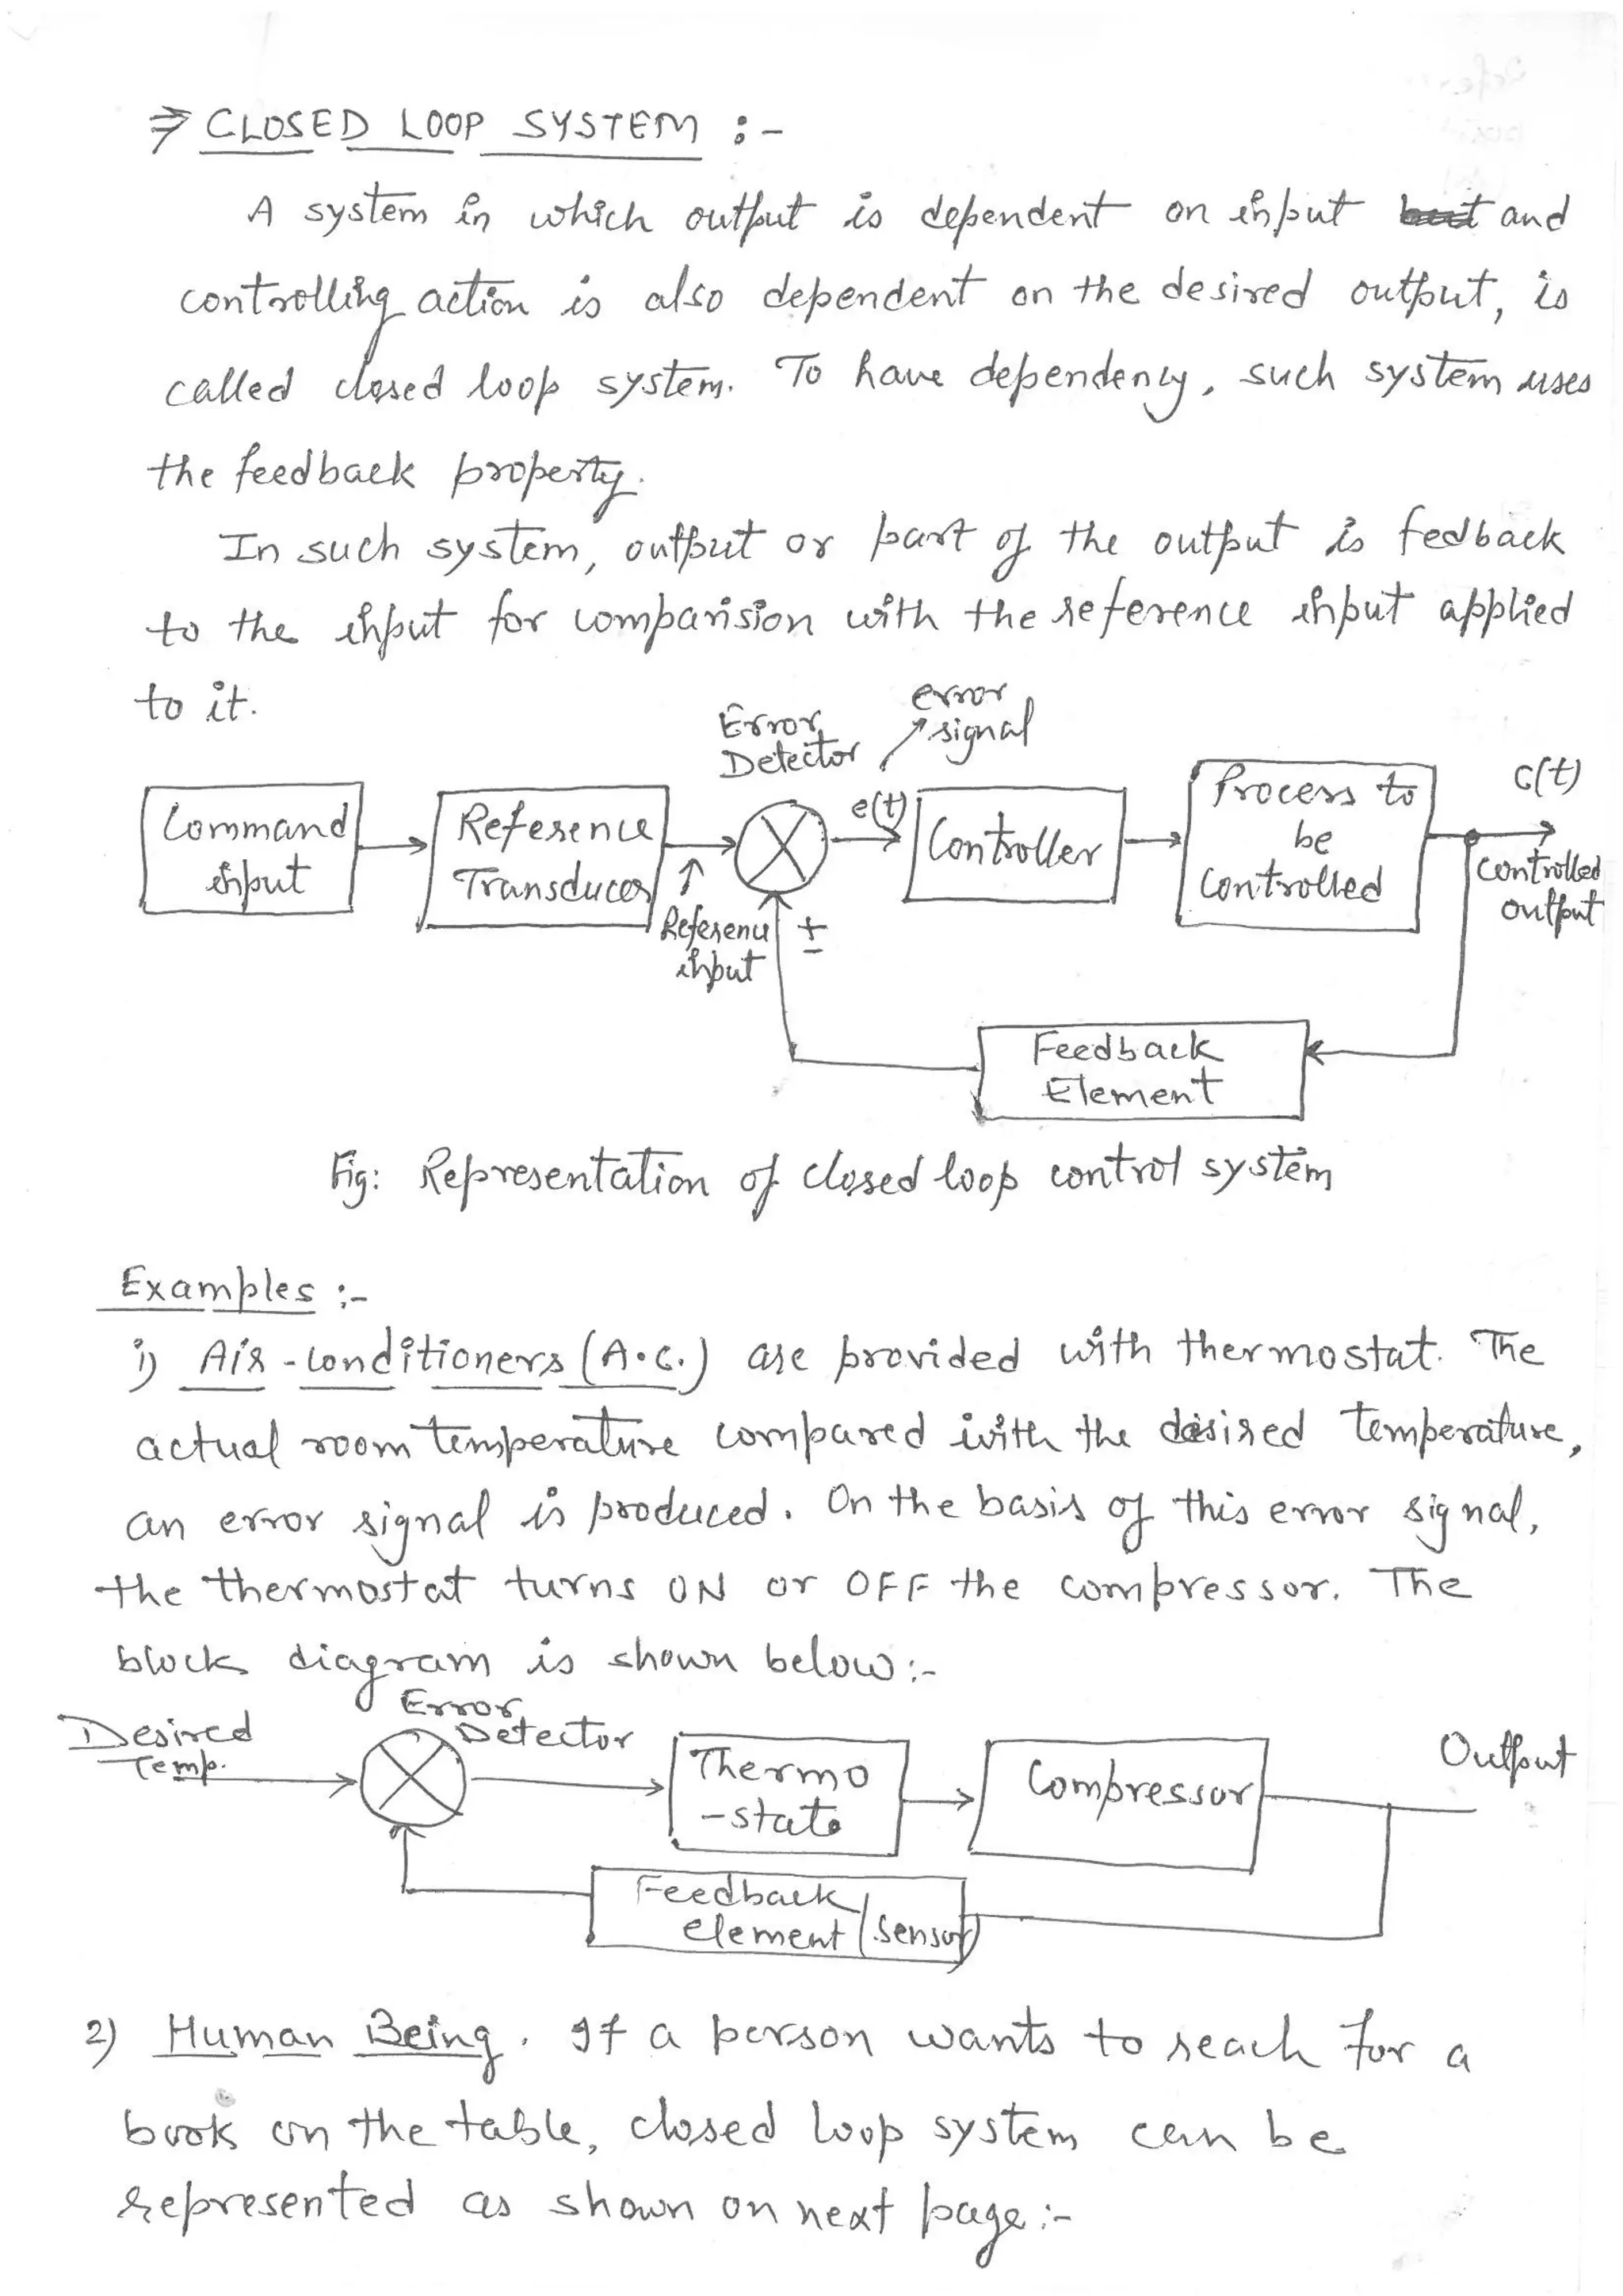 ⇒ CLOSED LOOP SYSTEM :-
A system in which output is dependent on input but and
controlling action is also dependent on the desired output, is
called closed loop system. To have dependency, such system uses
the feedback property.
In such system, output or part of the output is fedback
to the input for comparision with the reference input applied
to it.
error
signal
Error
Detector
Command
input
Reference
Transducer
Reference
input
±
e(t)
Controller
Process to
be
Controlled
c(t)
controlled
output
Feedback
Element
Fig: Representation of closed loop control system
Examples :-
1) Air-conditioners (A.C.) are provided with thermostat. The
actual room temperature compared with the desired temperature,
an error signal is produced. On the basis of this error signal,
the thermostat turns ON or OFF the compressor. The
block diagram is shown below:-
Desired
Temp.
Error
Detector
Thermo
-state
Compressor
Output
Feedback
element/sensor
2) Human Being. If a person wants to reach for a
book on the table, closed loop system can be
represented as shown on next page:-